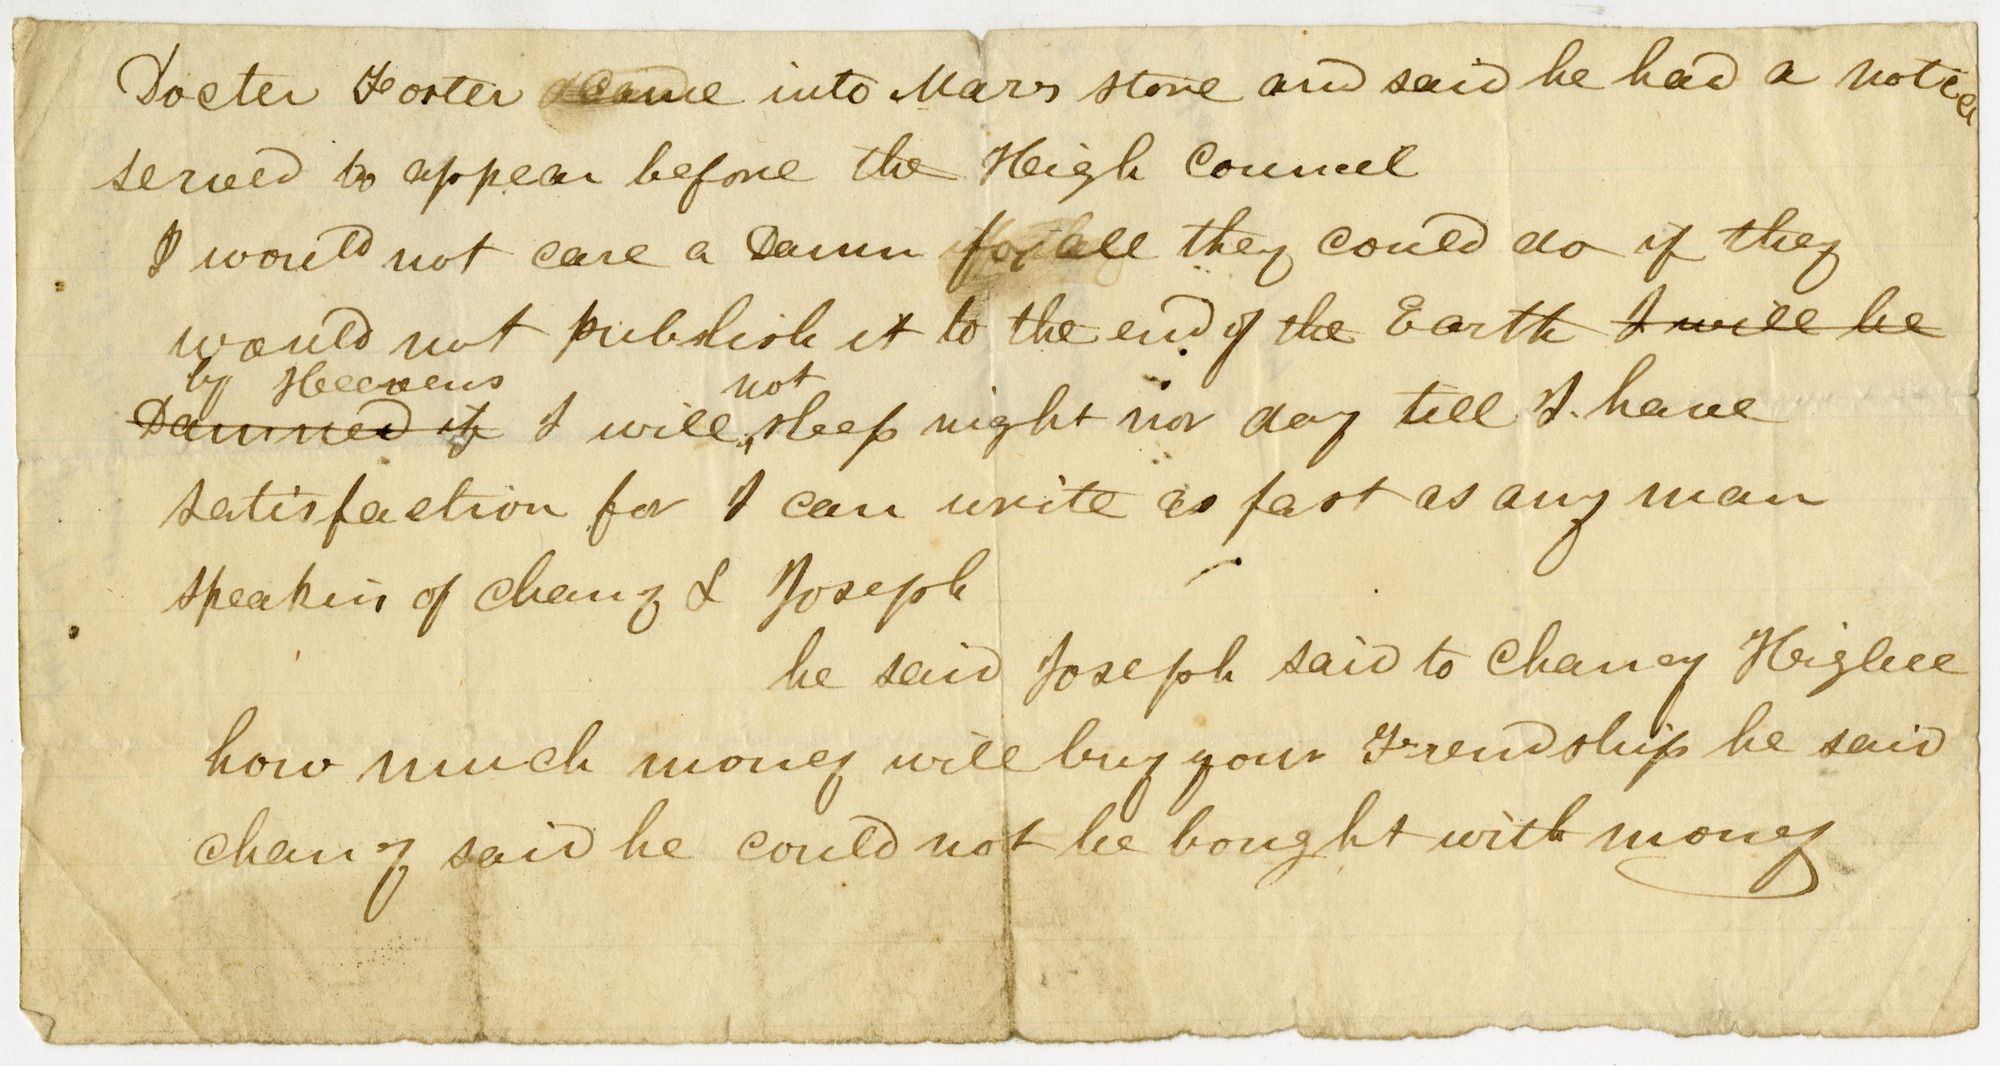 Docter Foster came into Mars store and said he had a notice
served to appear before the Heigh Councel
I would not care a Damn for all they could do if they
would not publish it to the end of the Earth I will be
by Heevens not
Damned if I will sleep night nor day till I have
satisfaction for I can write as fast as any man
speakin of Chany & Joseph
he said Joseph said to Chancy Heigbee
how much money will buy your Frendship he said
Chany said he could not be bought with money